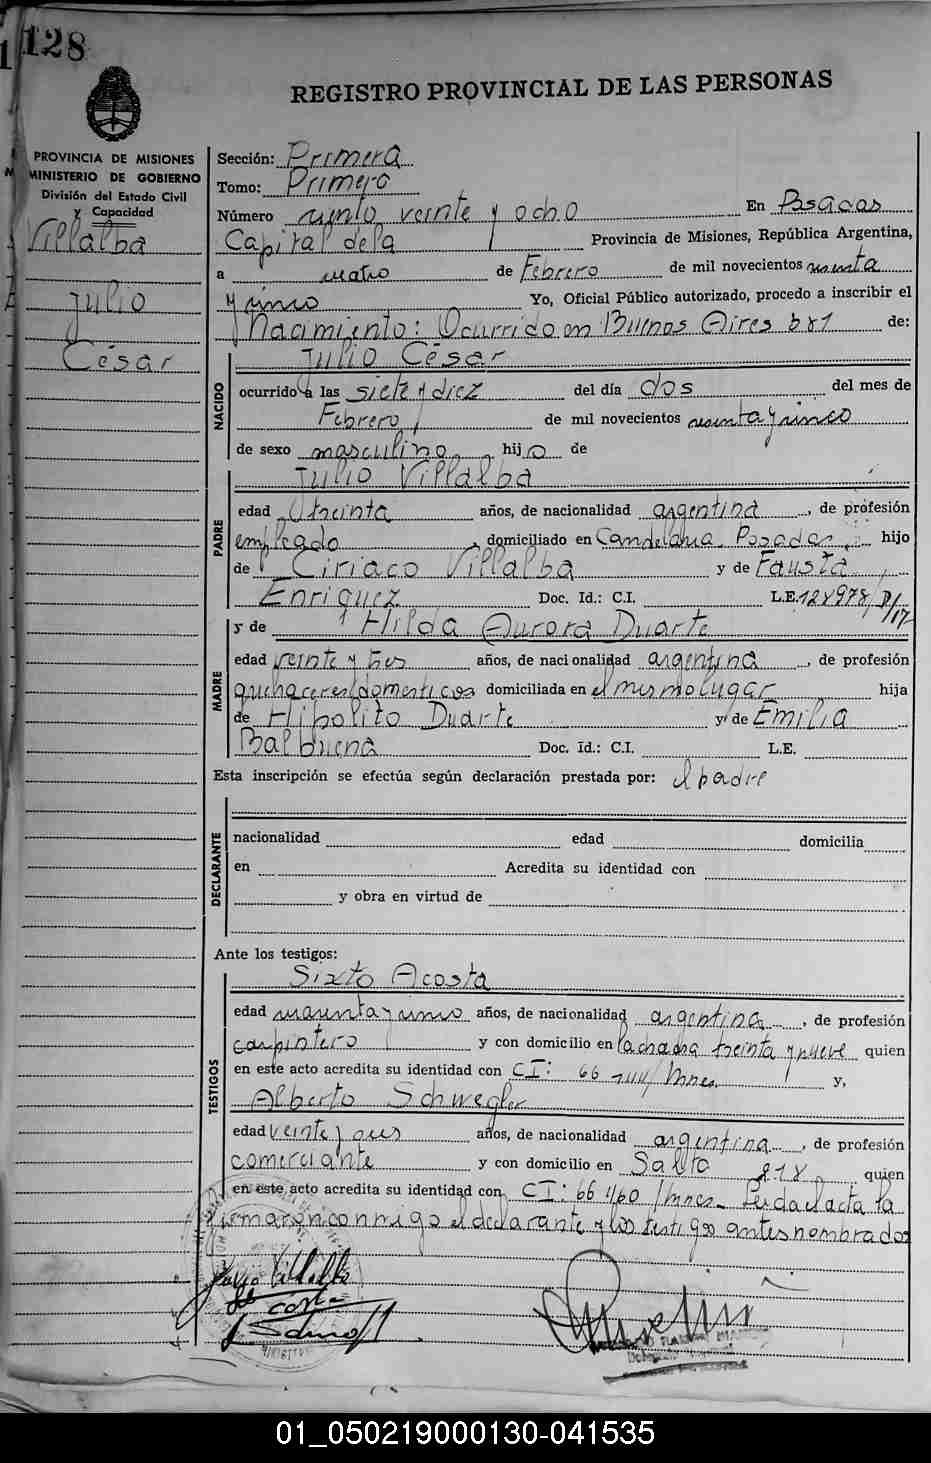 128
REGISTRO PROVINCIAL DE LAS PERSONAS
PROVINCIA DE MISIONES
MINISTERIO DE GOBIERNO
División del Estado Civil
y Capacidad
Villalba
Julio
César
Sección: Primera
Tomo: Primero
Número ciento veinte y ocho En Posadas
Capital de la Provincia de Misiones, República Argentina,
a cuatro de Febrero de mil novecientos sesenta
y cinco Yo, Oficial Público autorizado, procedo a inscribir el
Nacimiento: Ocurrido en Buenos Aires 681 de:
NACIDO
Julio César
ocurrido a las siete y diez del día dos del mes de
Febrero de mil novecientos sesenta y cinco
de sexo masculino hijo de
PADRE
Julio Villalba
edad treinta años, de nacionalidad argentina, de profesión
empleado, domiciliado en Candelaria. Posadas, hijo
de Ciriaco Villalba y de Fausta
Enriquez Doc. Id.: C.I. L.E.
MADRE
y de Hilda Aurora Duarte
edad veinte y tres años, de nacionalidad argentina, de profesión
quehaceres domesticos domiciliada en el mismo lugar hija
de Hipolito Duarte y de Emilia
Balbuena Doc. Id.: C.I. L.E.
Esta inscripción se efectúa según declaración prestada por: el padre
DECLARANTE
nacionalidad edad domicilia
en Acredita su identidad con
y obra en virtud de
Ante los testigos:
TESTIGOS
Sixto Acosta
edad cuarenta y cinco años, de nacionalidad argentina, de profesión
carpintero y con domicilio en la chacra treinta y nueve quien
en este acto acredita su identidad con CI: 66 /Mnes. y,
Alberto Schwegler
edad veinte y años, de nacionalidad argentina, de profesión
comerciante y con domicilio en Salta 818 quien
en este acto acredita su identidad con CI: 66 1160 /Mnes. Leida el acta la
firmaron conmigo el declarante y los testigos antes nombrados
Julio Villalba
Acosta
01_050219000130-041535